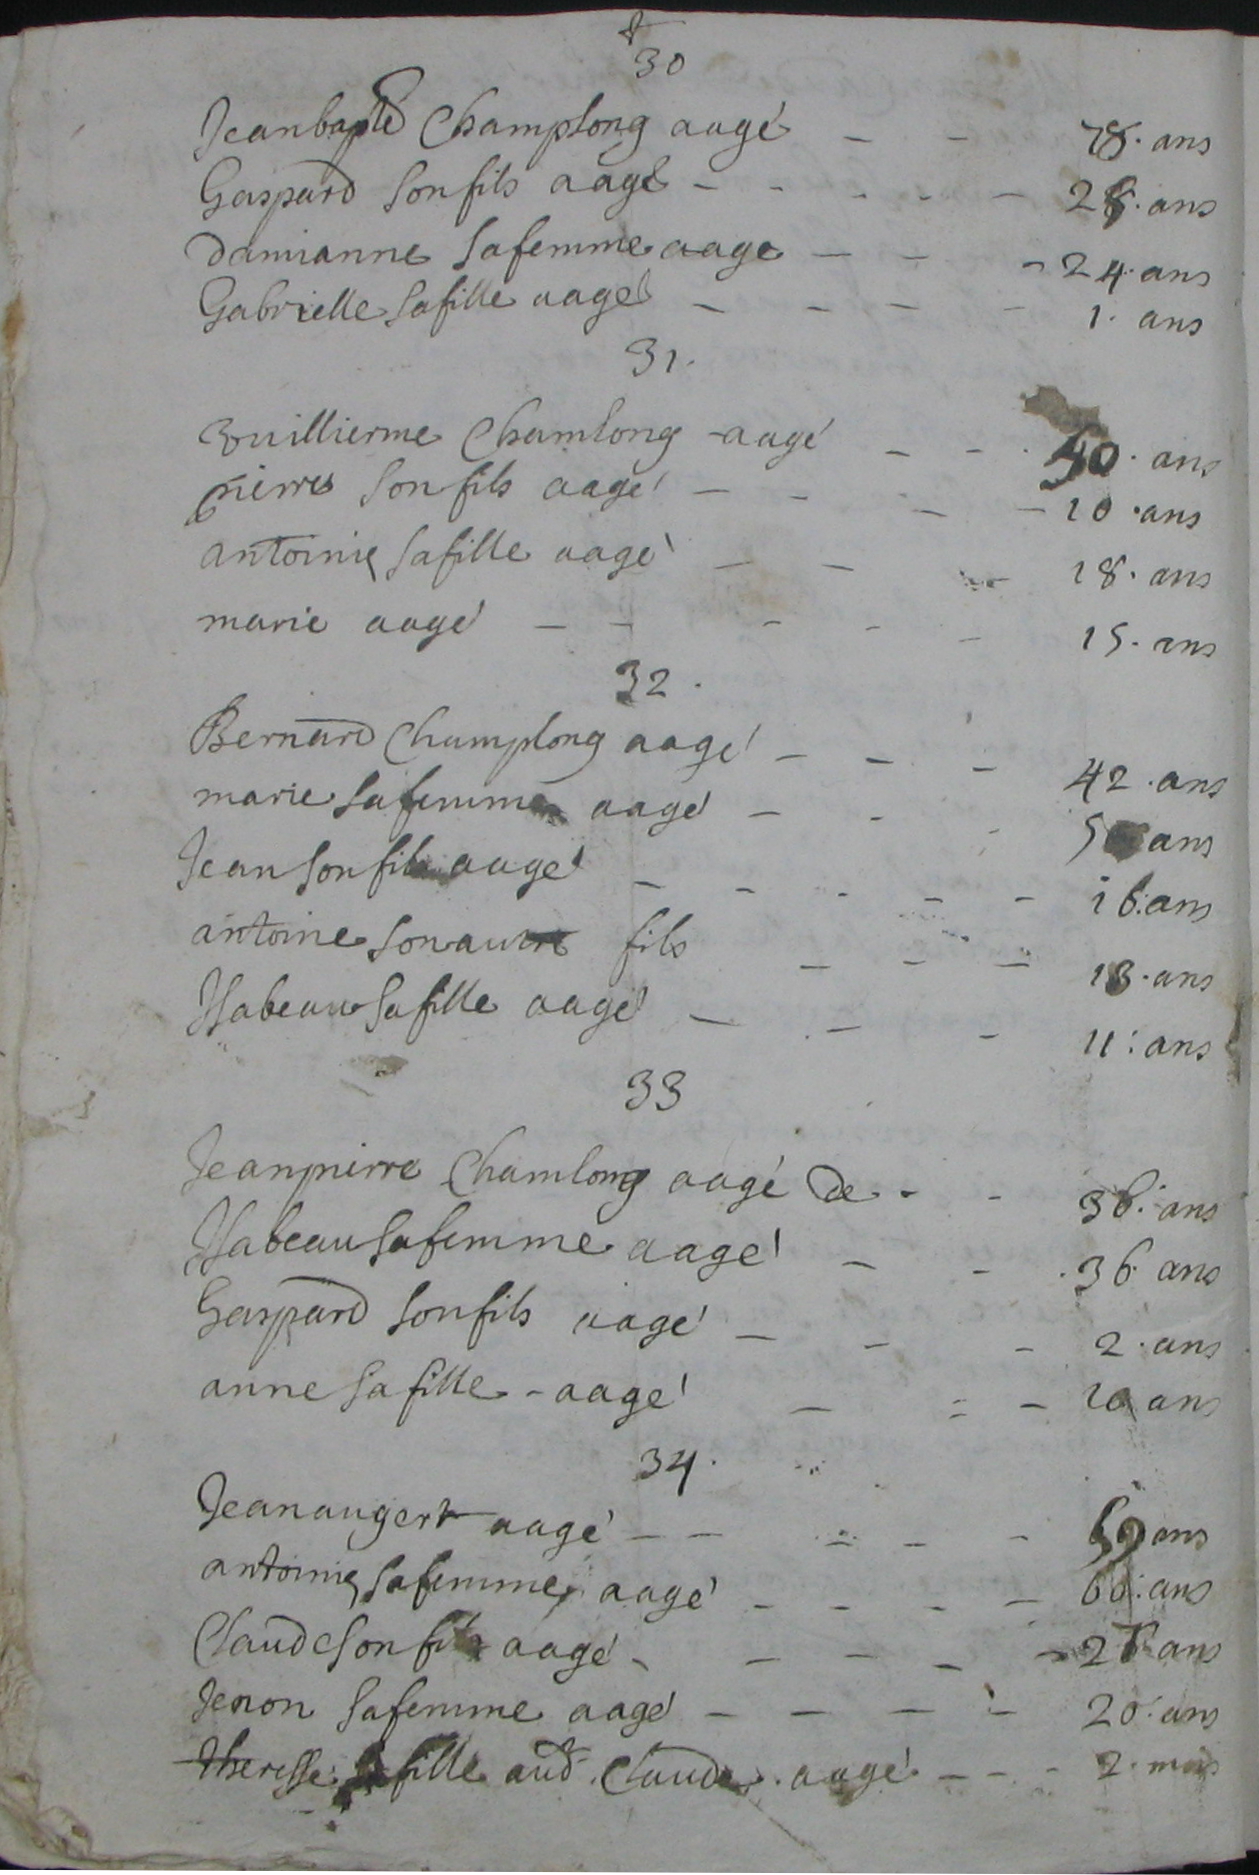 30
Jeanbapte Champlong aagé - - 78. ans
Gaspard son fils aagé - - - - - 28. ans
Damianne sa femme aage - - - 24. ans
Gabrielle sa fille aagé - - - - 1. ans
31.
Guillierme Chamlong aagé - - 50. ans
pierre son fils aagé - - - - 10 ans
antoinie sa fille aagé - - - 18. ans
marie aagé - - - - - 15. ans
32.
Bernard Champlong aagé - - - 42. ans
marie sa femme aagé - - - ans
Jean son fils aagé - - - - - 16. ans
antoine son autre fils - - - 13. ans
Isabeau sa fille aagé - - - 11. ans
33
Jeanpierre Chamlong aagé de - - 36. ans
Isabeau sa femme aagé - - 36 ans
Gaspard son fils aagé - - - 2. ans
anne sa fille - aagé - = - 10 ans
34.
Jean augert aagé - - = - - ans
antoinie sa femme aagé - - - - 60. ans
Claude son fils aagé - - - - - ans
Jenon sa femme aagé - - - - 20. ans
theresse sa fille aud. Claude. aagé - - - 2. mois